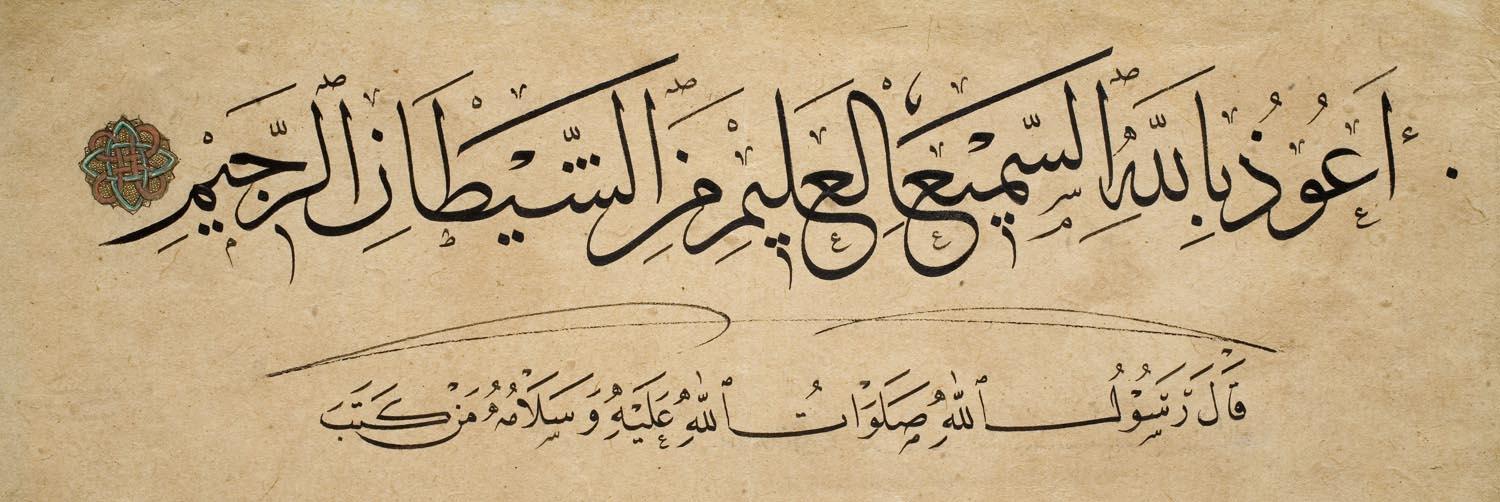 أَعُوذُ بِاللَّهِ السَّمِيعِ الْعَلِيمِ مِنَ الشَّيْطَانِ الرَّجِيمِ
قَالَ رَسُولُ اللَّهِ صَلَوَاتُ اللَّهِ عَلَيْهِ وَسَلَامُهُ مَنْ كَتَبَ